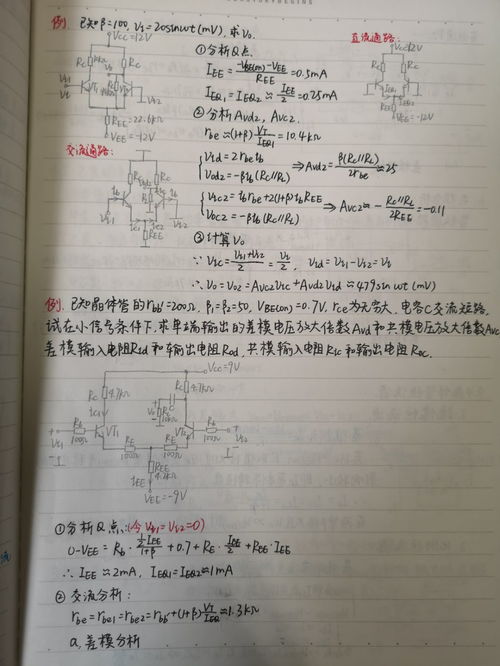 例. 已知β=100, Vs=20sinwt(mV), 求Vo.
直流通路:
VCC=12V
①分析Q点.
IEE = (-VBE(on)-VEE)/REE = 0.5mA
IEQ1=IEQ2≈IEE/2=0.25mA
REE=22.6kΩ
VEE=-12V
②分析Avd2, Avc2.
rbe≈(1+β)VT/IEQ1=10.4kΩ
交流通路:
{Vid=2rbe ib
Vod2=-βib(RC//RL) ⇒Avd2=β(RC//RL)/2rbe≈25
{Vsc2=ib rbe+2(1+β)ib REE
Voc2=-βib(RC//RL) ⇒ Avc2≈-(RC//RL)/2REE=-0.11
③计算Vo
∵ Vsc=(Vs1+Vs2)/2=Vs/2, Vid=Vs1-Vs2=Vs
∴ Vo=Vo2=Avc2Vsc+Avd2Vid≈479sinwt(mV)
例. 已知晶体管的rbb'=200Ω, β1=β2=50, VBE(on)=0.7V, rce为无穷大, 电容C交流短路.
试在小信号条件下,求单端输出的差模电压放大倍数Avd和共模电压放大倍数Avc
差模输入电阻Rid和输出电阻Rod,共模输入电阻Ric和输出电阻Roc.
VCC=9V
RC 4.7kΩ
RC 4.7kΩ
Rb 100Ω
VT1
VT2
Rb 100Ω
RE 100Ω
RE 100Ω
REE 4.7kΩ
IEE
VEE=-9V
①分析Q点:(令Vs1=Vs2=0)
0-VEE = Rb·(½IEE)/(1+β)+0.7+RE·IEE/2+REE·IEE
∴ IEE≈2mA, IEQ1=IEQ2≈1mA
②交流分析:
rbe=rbe1=rbe2=rbb'+(1+β)VT/IEQ≈1.3kΩ
a.差模分析